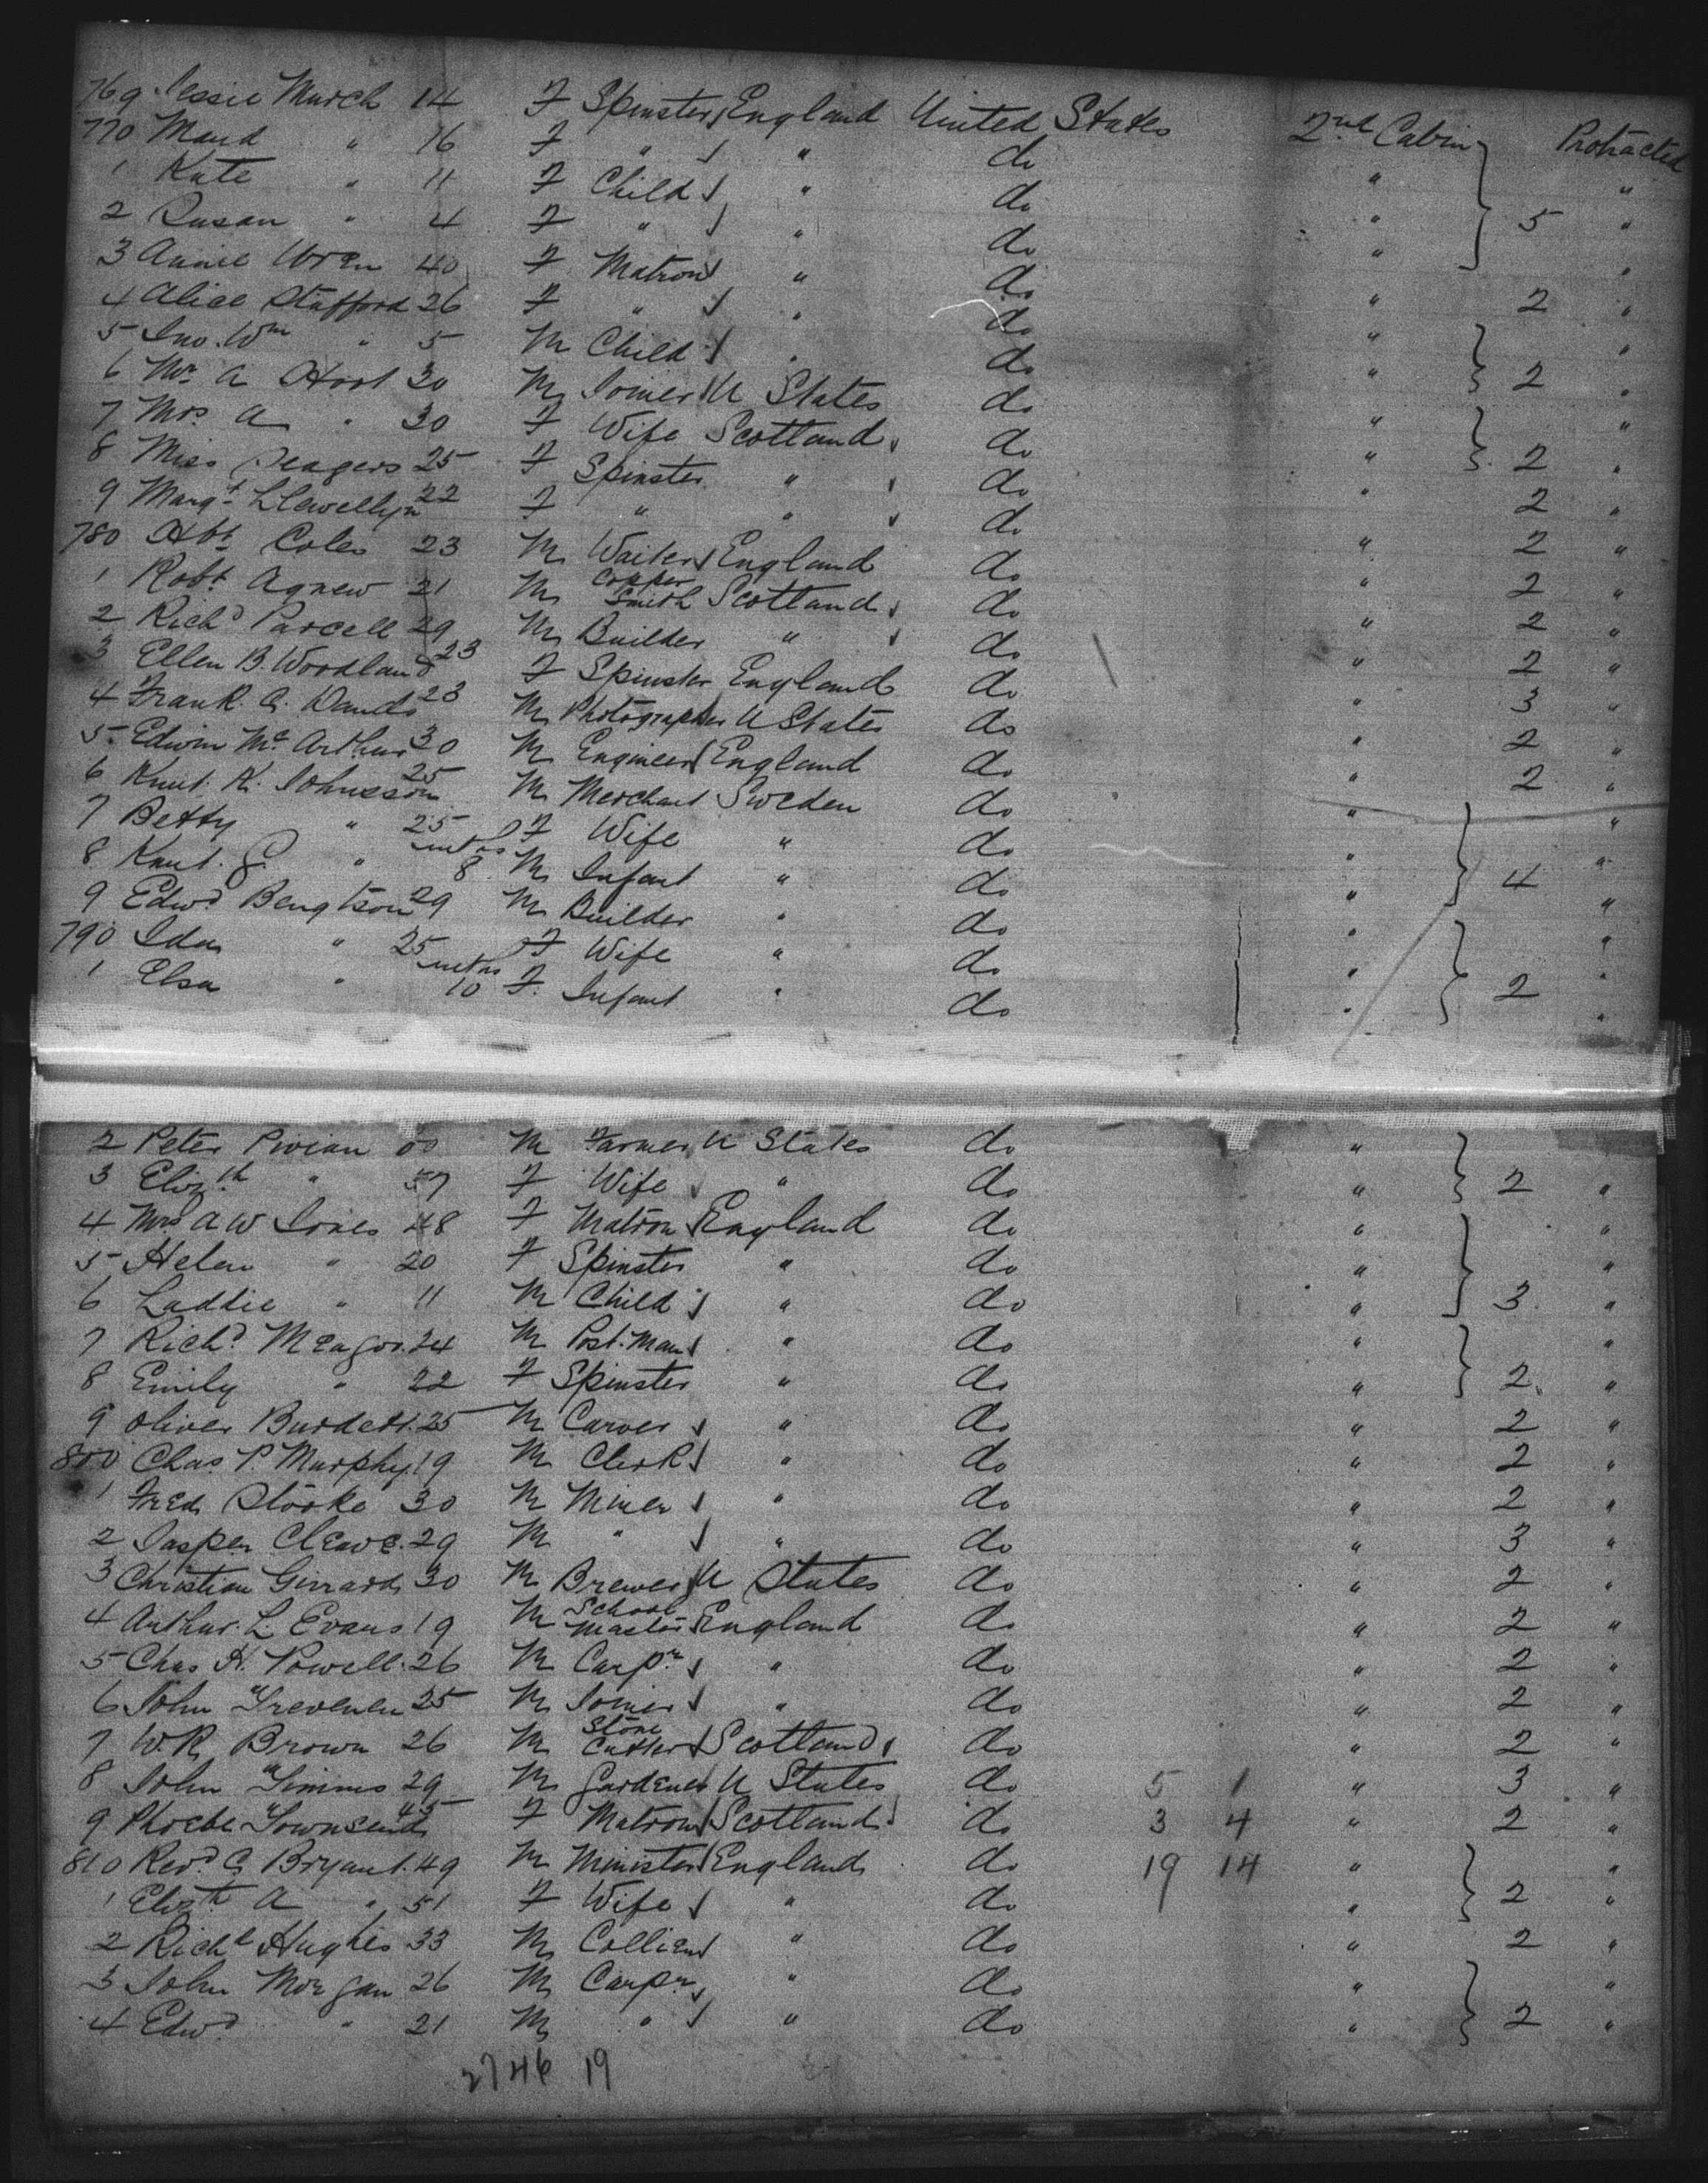 769 Jessie March 14 F Spinster England United States 2nd Cabin Protracted
770 Maud " 16 F " " do "  "
1 Kate " 11 F Child " do " 5 "
2 Susan " 4 F " " do " "
3 Annie Wren 40 F Matron " do " 2 "
4 Alice Stafford 26 F " " do " "
5 Jno. Wm " 5 M Child " do " 2 "
6 Mr A 30 M Joiner U States do " "
7 Mrs A " 30 F Wife Scotland do " 2 "
8 Miss Seagers 25 F Spinster " do " 2 "
9 Margt Llewellyn 22 F " " do " 2 "
780 Coles 23 M Waiter England do " 2 "
1 Robt Agnew 21 M Copper Smith Scotland do " 2 "
2 Richd Purcell 29 M Builder " do " 2 "
3 Ellen B. Woodland 23 F Spinster England do " 3 "
4 Frank 23 M Photographer U States do " 2 "
5 Edwin McArthur 30 M Engineer England do " 2 "
6 Knut. K. Johnsson 25 M Merchant Sweden do " "
7 Betty " 25 F Wife " do " "
8 Knut. G. " mths 8 M Infant " do " 4 "
9 Edwd Bengtson 29 M Builder " do " "
790 Ida " 25 F Wife " do " "
1 Elsa " mths 10 F Infant " do " 2 "
2 Peter M Farmer U States do "
3 Elizth " 57 F Wife " do " 2 "
4 Mrs A W Jones 48 F Matron England do " "
5 Helen " 20 F Spinster " do " "
6 Laddie " 11 M Child " do " 3 "
7 Richd Meagor 24 M Post-Man " do " "
8 Emily " 22 F Spinster " do " 2 "
9 Oliver Burdett 25 M Carver " do " 2 "
800 Chas P. Murphy 19 M Clerk " do " 2 "
1 Fred 30 M Miner " do " 2 "
2 Jasper Cleave 29 M " " do " 3 "
3 Christian Girrard 30 M Brewer U States do " 2 "
4 Arthur L. Evans 19 M School Master England do " 2 "
5 Chas H. Powell 26 M Carpr " do " 2 "
6 John Trevenen 25 M Joiner " do " 2 "
7 W.R. Brown 26 M Stone Cutter Scotland do " 2 "
8 John Timms 29 M Gardener U States do 5 1 " 3 "
9 Phoebe Townsend 45 F Matron Scotland do 3 4 " 2 "
810 Revd G Bryant 49 M Minister England do 19 14 " "
1 Elizth A " 51 F Wife " do " 2 "
2 Richd Hughes 33 M Collier " do " 2 "
3 John Morgan 26 M Carpr " do " "
4 Edwd " 21 M " " do " 2 "
2746 19